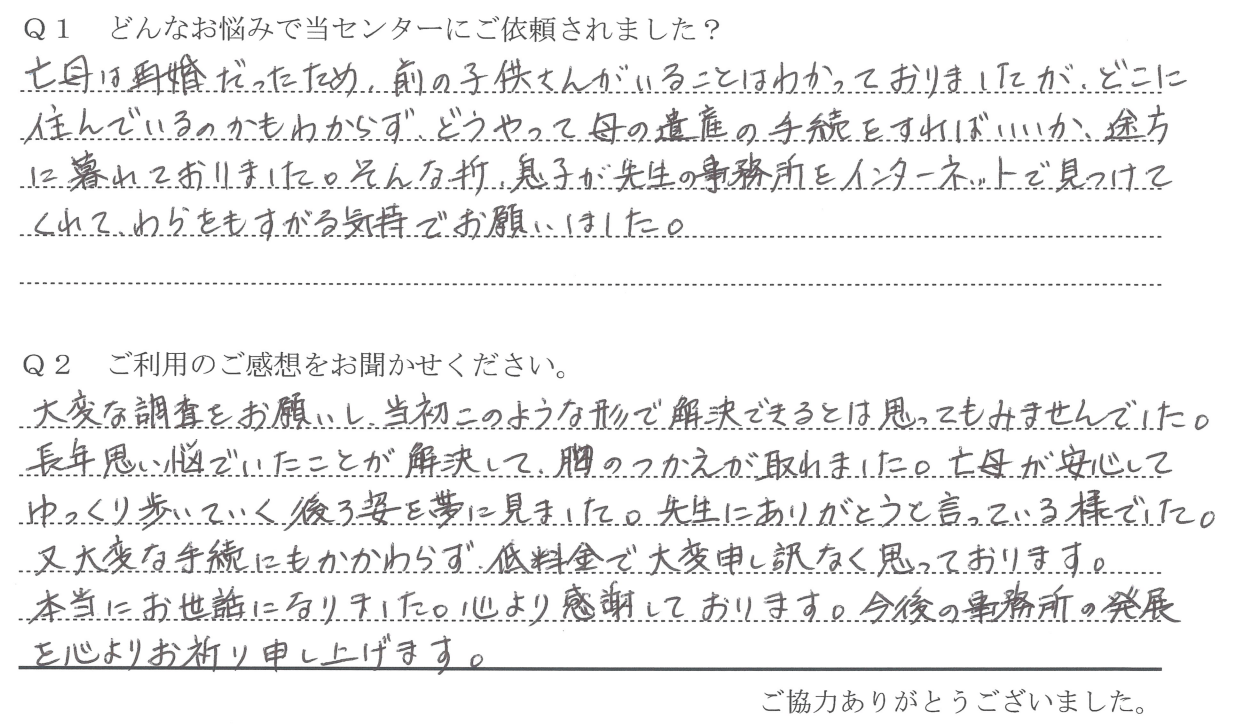 Q1　どんなお悩みで当センターにご依頼されました？
亡母は再婚だったため、前の子供さんがいることはわかっておりましたが、どこに
住んでいるのかもわからず、どうやって母の遺産の手続をすればいいか、途方
に暮れておりました。そんな折、息子が先生の事務所をインターネットで見つけて
くれて、わらをもすがる気持でお願いしました。
Q2　ご利用のご感想をお聞かせください。
大変な調査をお願いし、当初このような形で解決できるとは思ってもみませんでした。
長年思い悩でいたことが解決して、胸のつかえが取れました。亡母が安心して
ゆっくり歩いていく後ろ姿を夢に見ました。先生にありがとうと言っている様でした。
又大変な手続にもかかわらず、低料金で大変申し訳なく思っております。
本当にお世話になりました。心より感謝しております。今後の事務所の発展
を心よりお祈り申し上げます。
ご協力ありがとうございました。